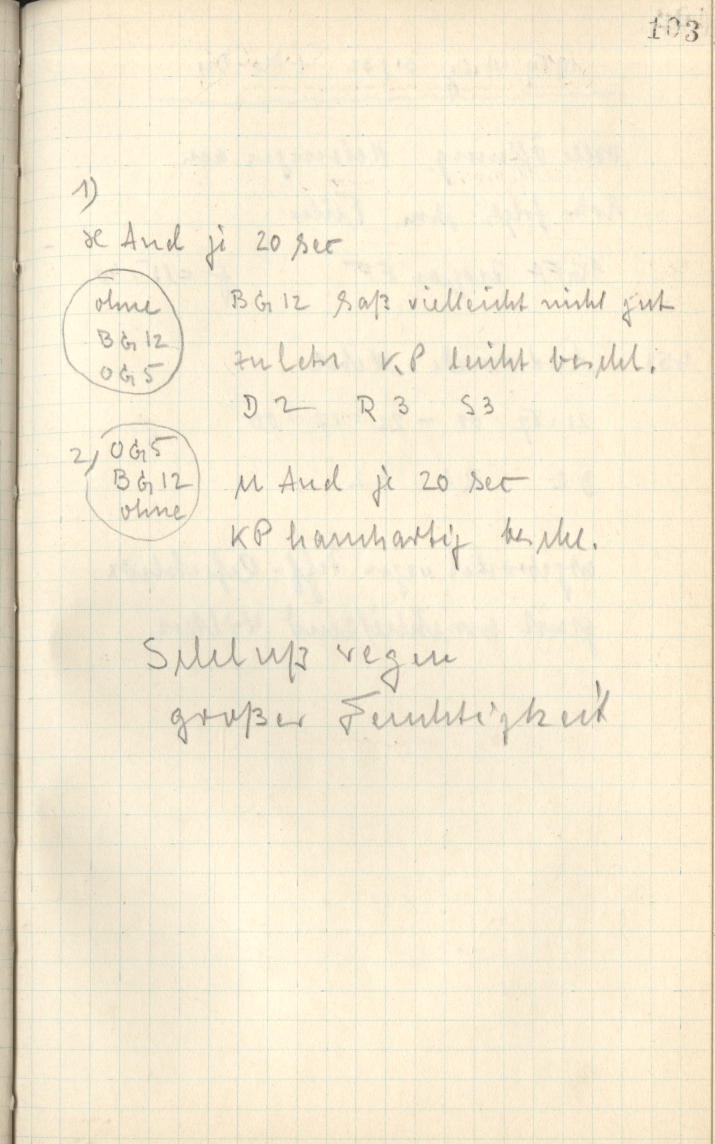 103
1)
And je 20 sec
ohne
BG 12
OG 5
BG 12 saß vielleicht nicht gut
zuletzt KP leicht beschl.
D 2 R 3 S 3
2) OG 5
BG 12
ohne
μ And je 20 sec
KP hauchartig beschl.
Schluß wegen
großer Feuchtigkeit